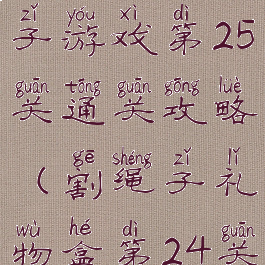 zǐ yóu xì dì
子游戏第25
guān tōng guān gōng lüè
关通关攻略
gē shéng zǐ lǐ
(割绳子礼
wù hé dì guān
物盒第24关